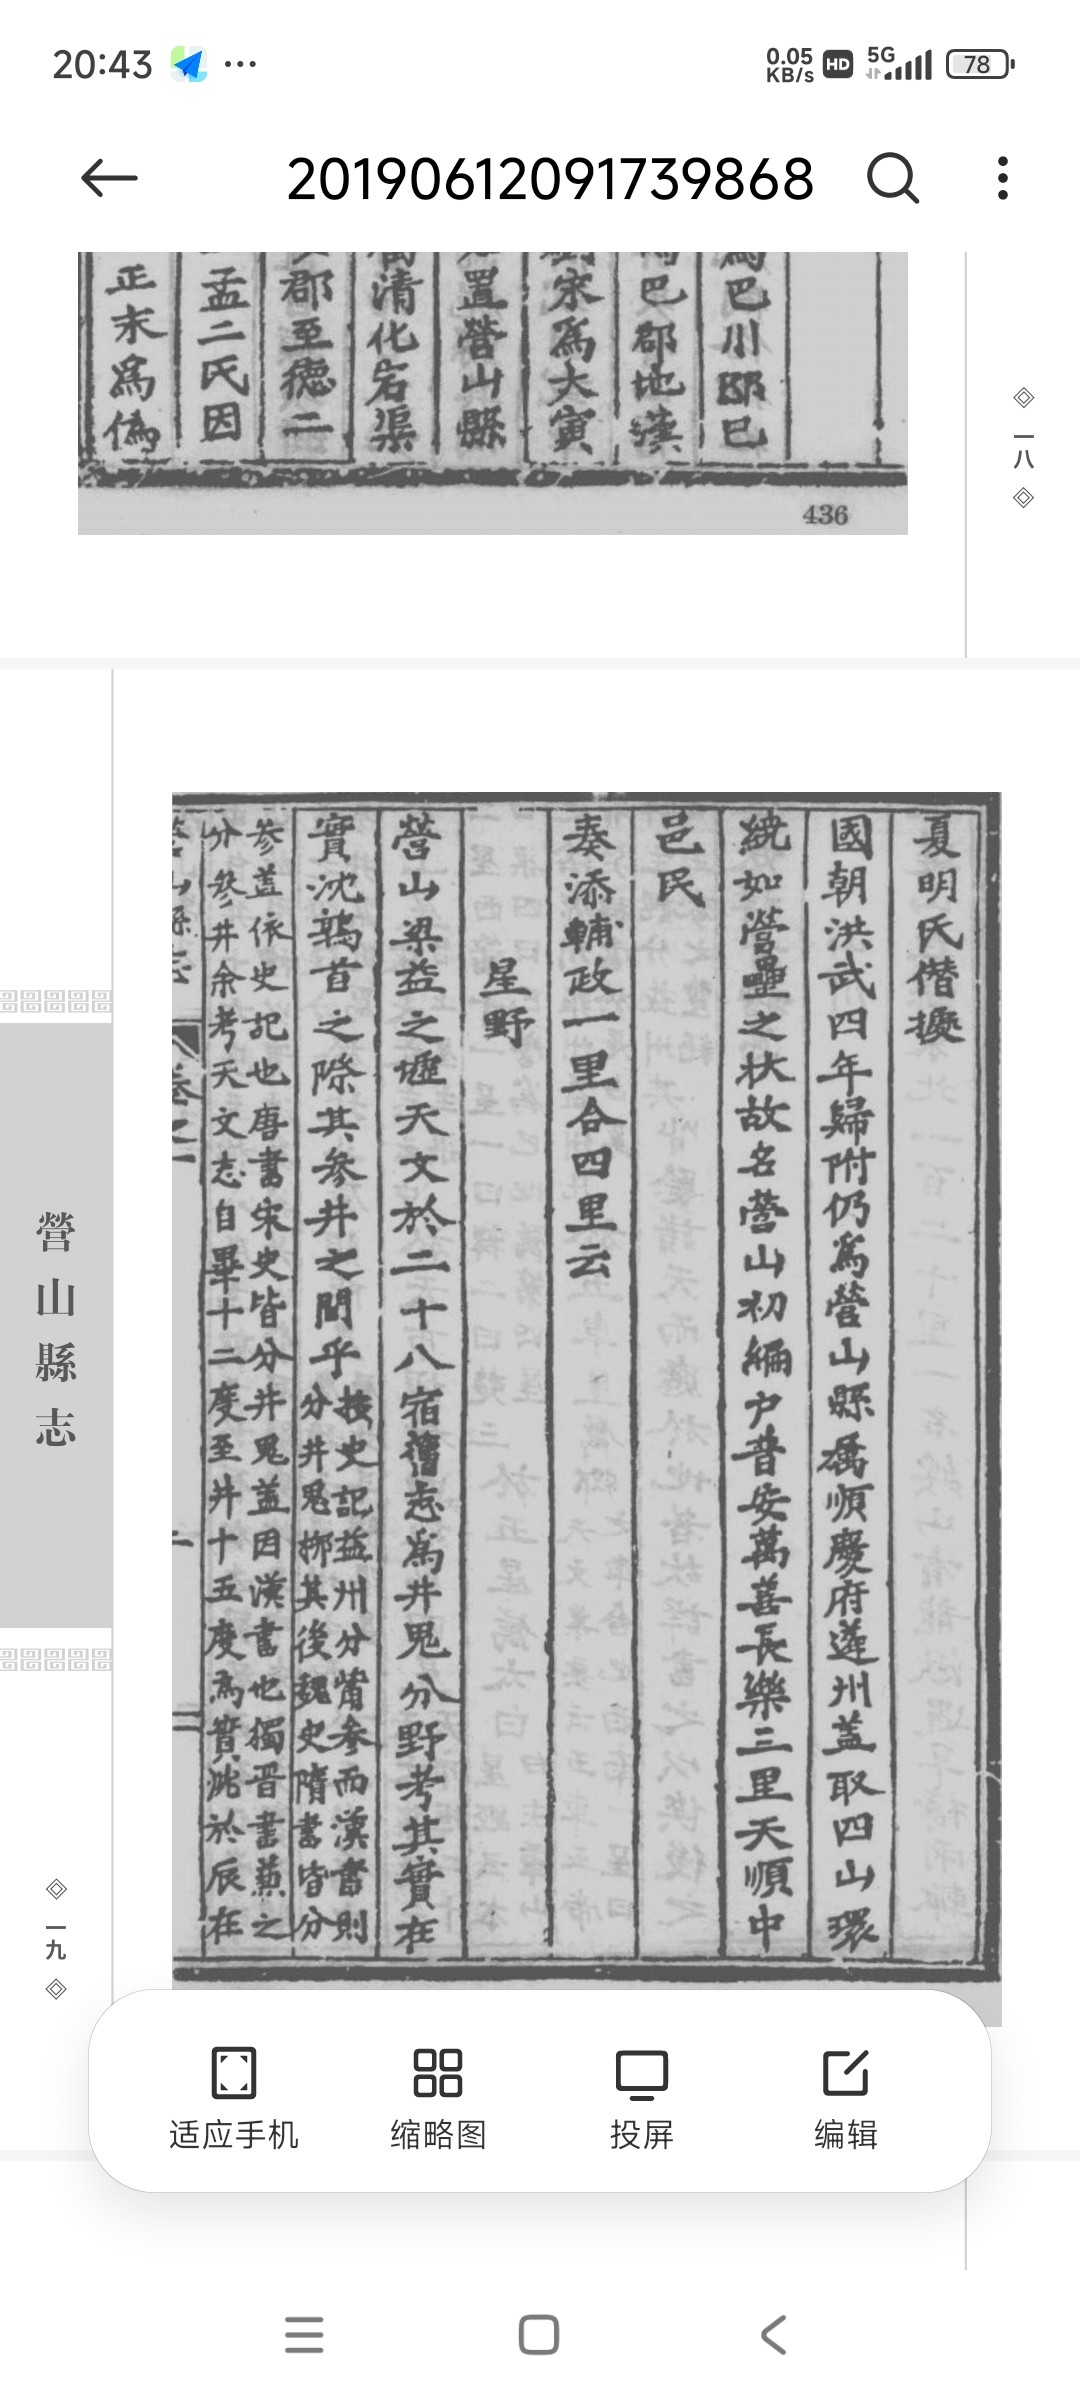 20:43
0.05 KB/s HD 5G 78
20190612091739868
巴川郡巴
巴郡地漢
宋為大寅
置營山縣
清化宕渠
郡至德二
孟二氏因
正末為偽
436
一八
夏明氏僭擾
國朝洪武四年歸附仍為營山縣屬順慶府蓬州蓋取四山環
繞如營壘之狀故名營山初編户普安萬善長樂三里天順中
邑民
奏添輔政一里合四里云
星野
營山梁益之壥天文於二十八宿舊志為井鬼分野考其實在
實沈鶉首之際其參井之間乎
按史記益州分觜参而漢書則
分井鬼栁其後魏史隋書皆分
参蓋依史記也唐書宋史皆分井鬼蓋因漢書也獨晋書蔡之
分参井余考天文志自畢十二度至井十五度為實沈於辰在
營山縣志
卷之一
營山縣志
一九
適应手机
缩略图
投屏
编辑